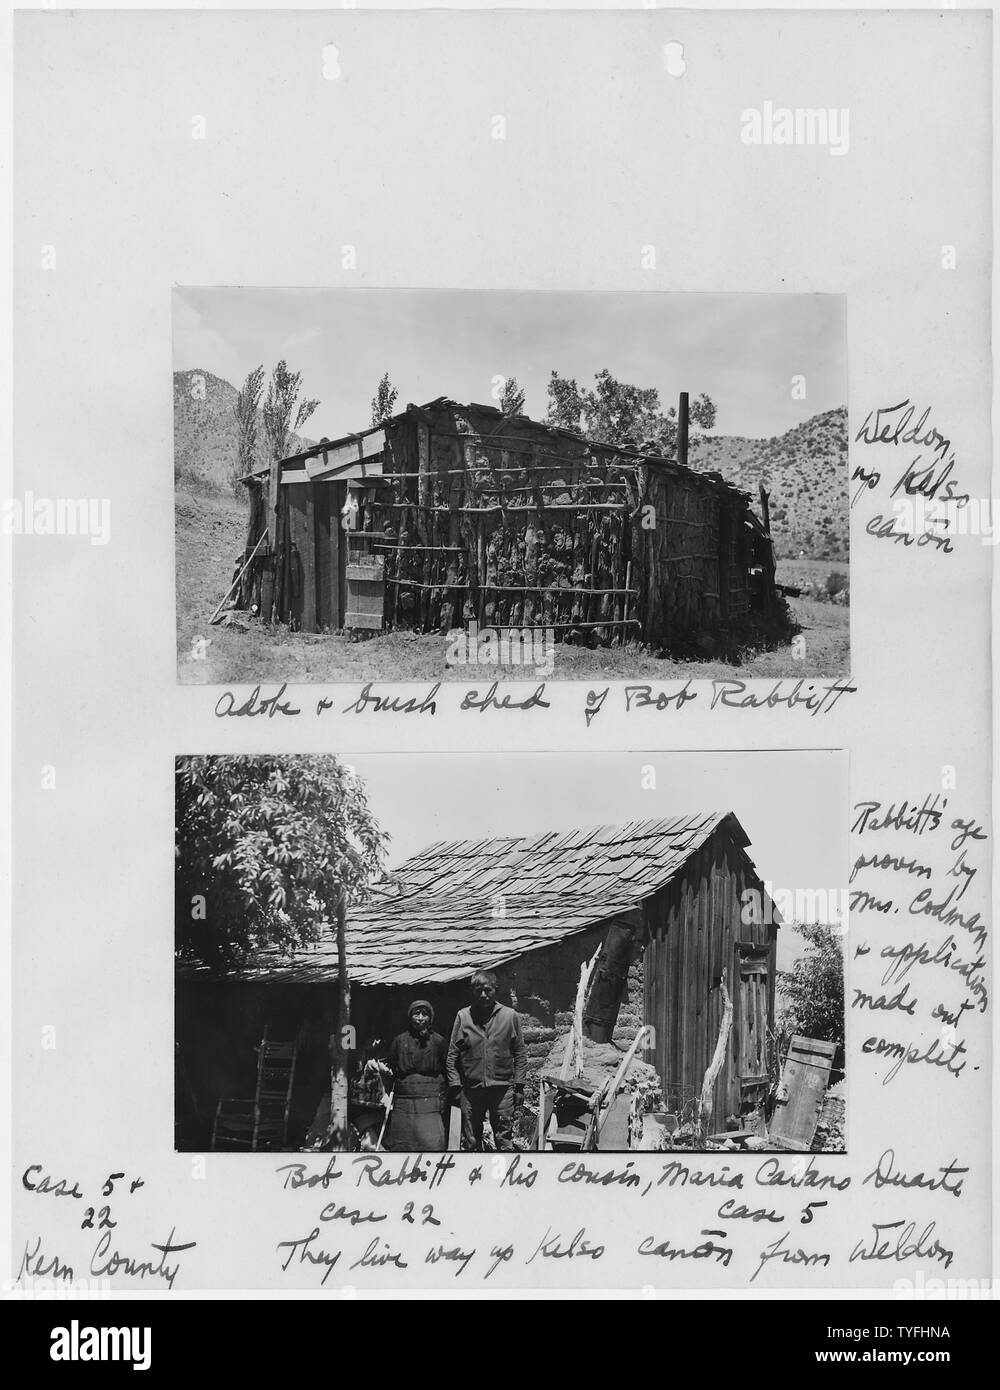 Weldon,
up Kelso
cañon
adobe & brush shed of Bob Rabbitt
Rabbitt's age
proven by
Mrs. Codman
& application
made out
complete.
Case 5 &
22
Kern County
Bob Rabbitt & his cousin, Maria Cavano Duarte
case 22 case 5
They live way up Kelso cañon from Weldon
alamy
Image ID: TYFHNA
www.alamy.com